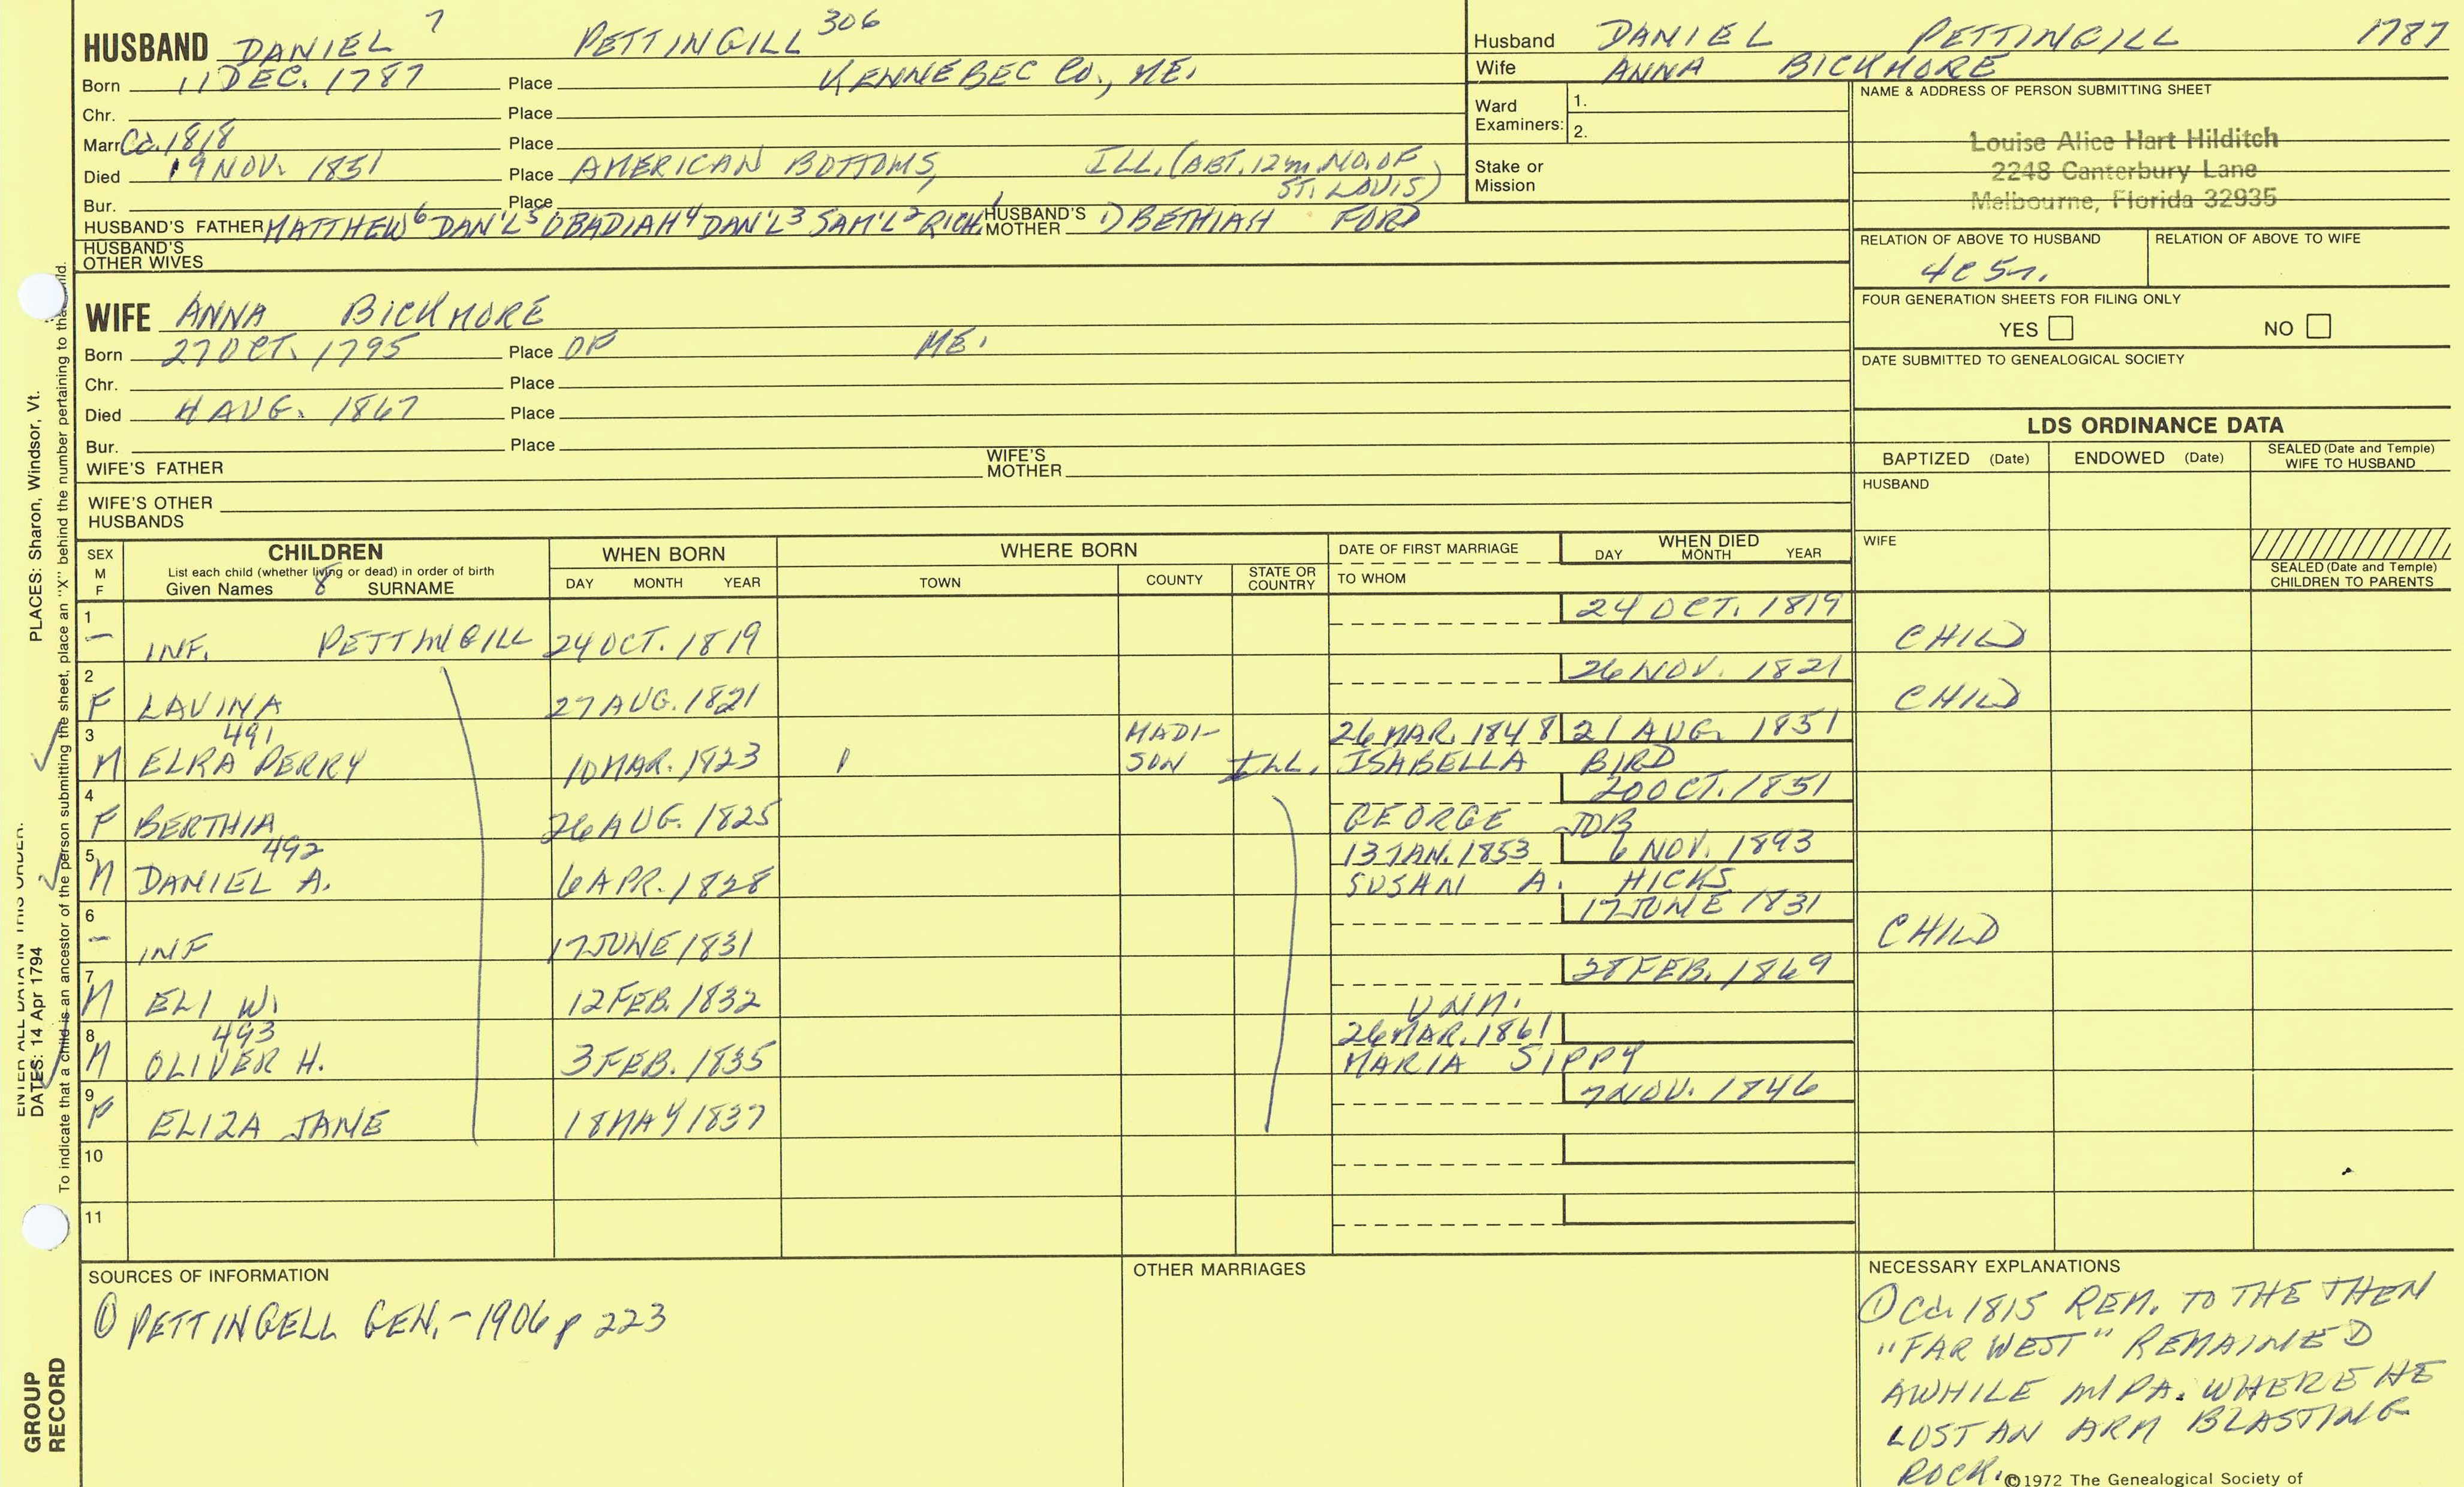 HUSBAND DANIEL 7 PETTINGILL 306
Born 11 DEC. 1787 Place KENNEBEC Co., ME.
Chr. Place
Marr Ca. 1818 Place
Died 19 NOV. 1851 Place AMERICAN BOTTOMS, ILL. (ABT. 12m. NO. OF ST. LOUIS)
Bur. Place
HUSBAND'S FATHER MATTHEW6 DAN'L5 OBADIAH4 DAN'L3 SAM'L2 RICH.1 HUSBAND'S MOTHER 1) BETHIAH FORD
HUSBAND'S OTHER WIVES
WIFE ANNA BICKMORE
Born 27 OCT. 1795 Place OF ME.
Chr. Place
Died 4 AUG. 1867 Place
Bur. Place
WIFE'S FATHER WIFE'S MOTHER
WIFE'S OTHER HUSBANDS
Husband DANIEL PETTINGILL 1787
Wife ANNA BICKMORE
Ward Examiners: 1.
2.
Stake or Mission
NAME & ADDRESS OF PERSON SUBMITTING SHEET
Louise Alice Hart Hilditch
2248 Canterbury Lane
Melbourne, Florida 32935
RELATION OF ABOVE TO HUSBAND RELATION OF ABOVE TO WIFE
4C5r.
FOUR GENERATION SHEETS FOR FILING ONLY
YES NO
DATE SUBMITTED TO GENEALOGICAL SOCIETY
LDS ORDINANCE DATA
BAPTIZED (Date) ENDOWED (Date) SEALED (Date and Temple) WIFE TO HUSBAND
HUSBAND
WIFE
SEALED (Date and Temple) CHILDREN TO PARENTS
SEX M F CHILDREN WHEN BORN WHERE BORN DATE OF FIRST MARRIAGE WHEN DIED
List each child (whether living or dead) in order of birth
Given Names 8 SURNAME DAY MONTH YEAR TOWN COUNTY STATE OR COUNTRY TO WHOM DAY MONTH YEAR
1 24 OCT. 1819
— INF. PETTINGILL 24 OCT. 1819 CHILD
2 26 NOV. 1821
F LAVINA 27 AUG. 1821 CHILD
3 491 MADI- 26 MAR. 1848 21 AUG. 1851
M ELRA PERRY 10 MAR. 1823 SON ILL. ISABELLA BIRD
4 20 OCT. 1851
F BERTHIA 26 AUG. 1825 GEORGE JOB
5 492 13 JAN. 1853 6 NOV. 1893
M DANIEL A. 6 APR. 1828 SUSAN A. HICKS
6 17 JUNE 1831
— INF 17 JUNE 1831 CHILD
7 28 FEB. 1869
M ELI W. 12 FEB. 1832 UNM.
8 493 26 MAR. 1861
M OLIVER H. 3 FEB. 1835 MARIA SIPPY
9 7 NOV. 1846
F ELIZA JANE 18 MAY 1837
10
11
SOURCES OF INFORMATION
① PETTINGELL GEN. - 1906 p 223
OTHER MARRIAGES
NECESSARY EXPLANATIONS
① Ca. 1815 REM. TO THE THEN
"FAR WEST" REMAINED
AWHILE IN PA. WHERE HE
LOST AN ARM BLASTING
ROCK.
©1972 The Genealogical Society of
ENTER ALL DATA IN THIS ORDER:
DATES: 14 Apr 1794 PLACES: Sharon, Windsor, Vt.
To indicate that a child is an ancestor of the person submitting the sheet, place an "X" behind the number pertaining to that child.
GROUP
RECORD